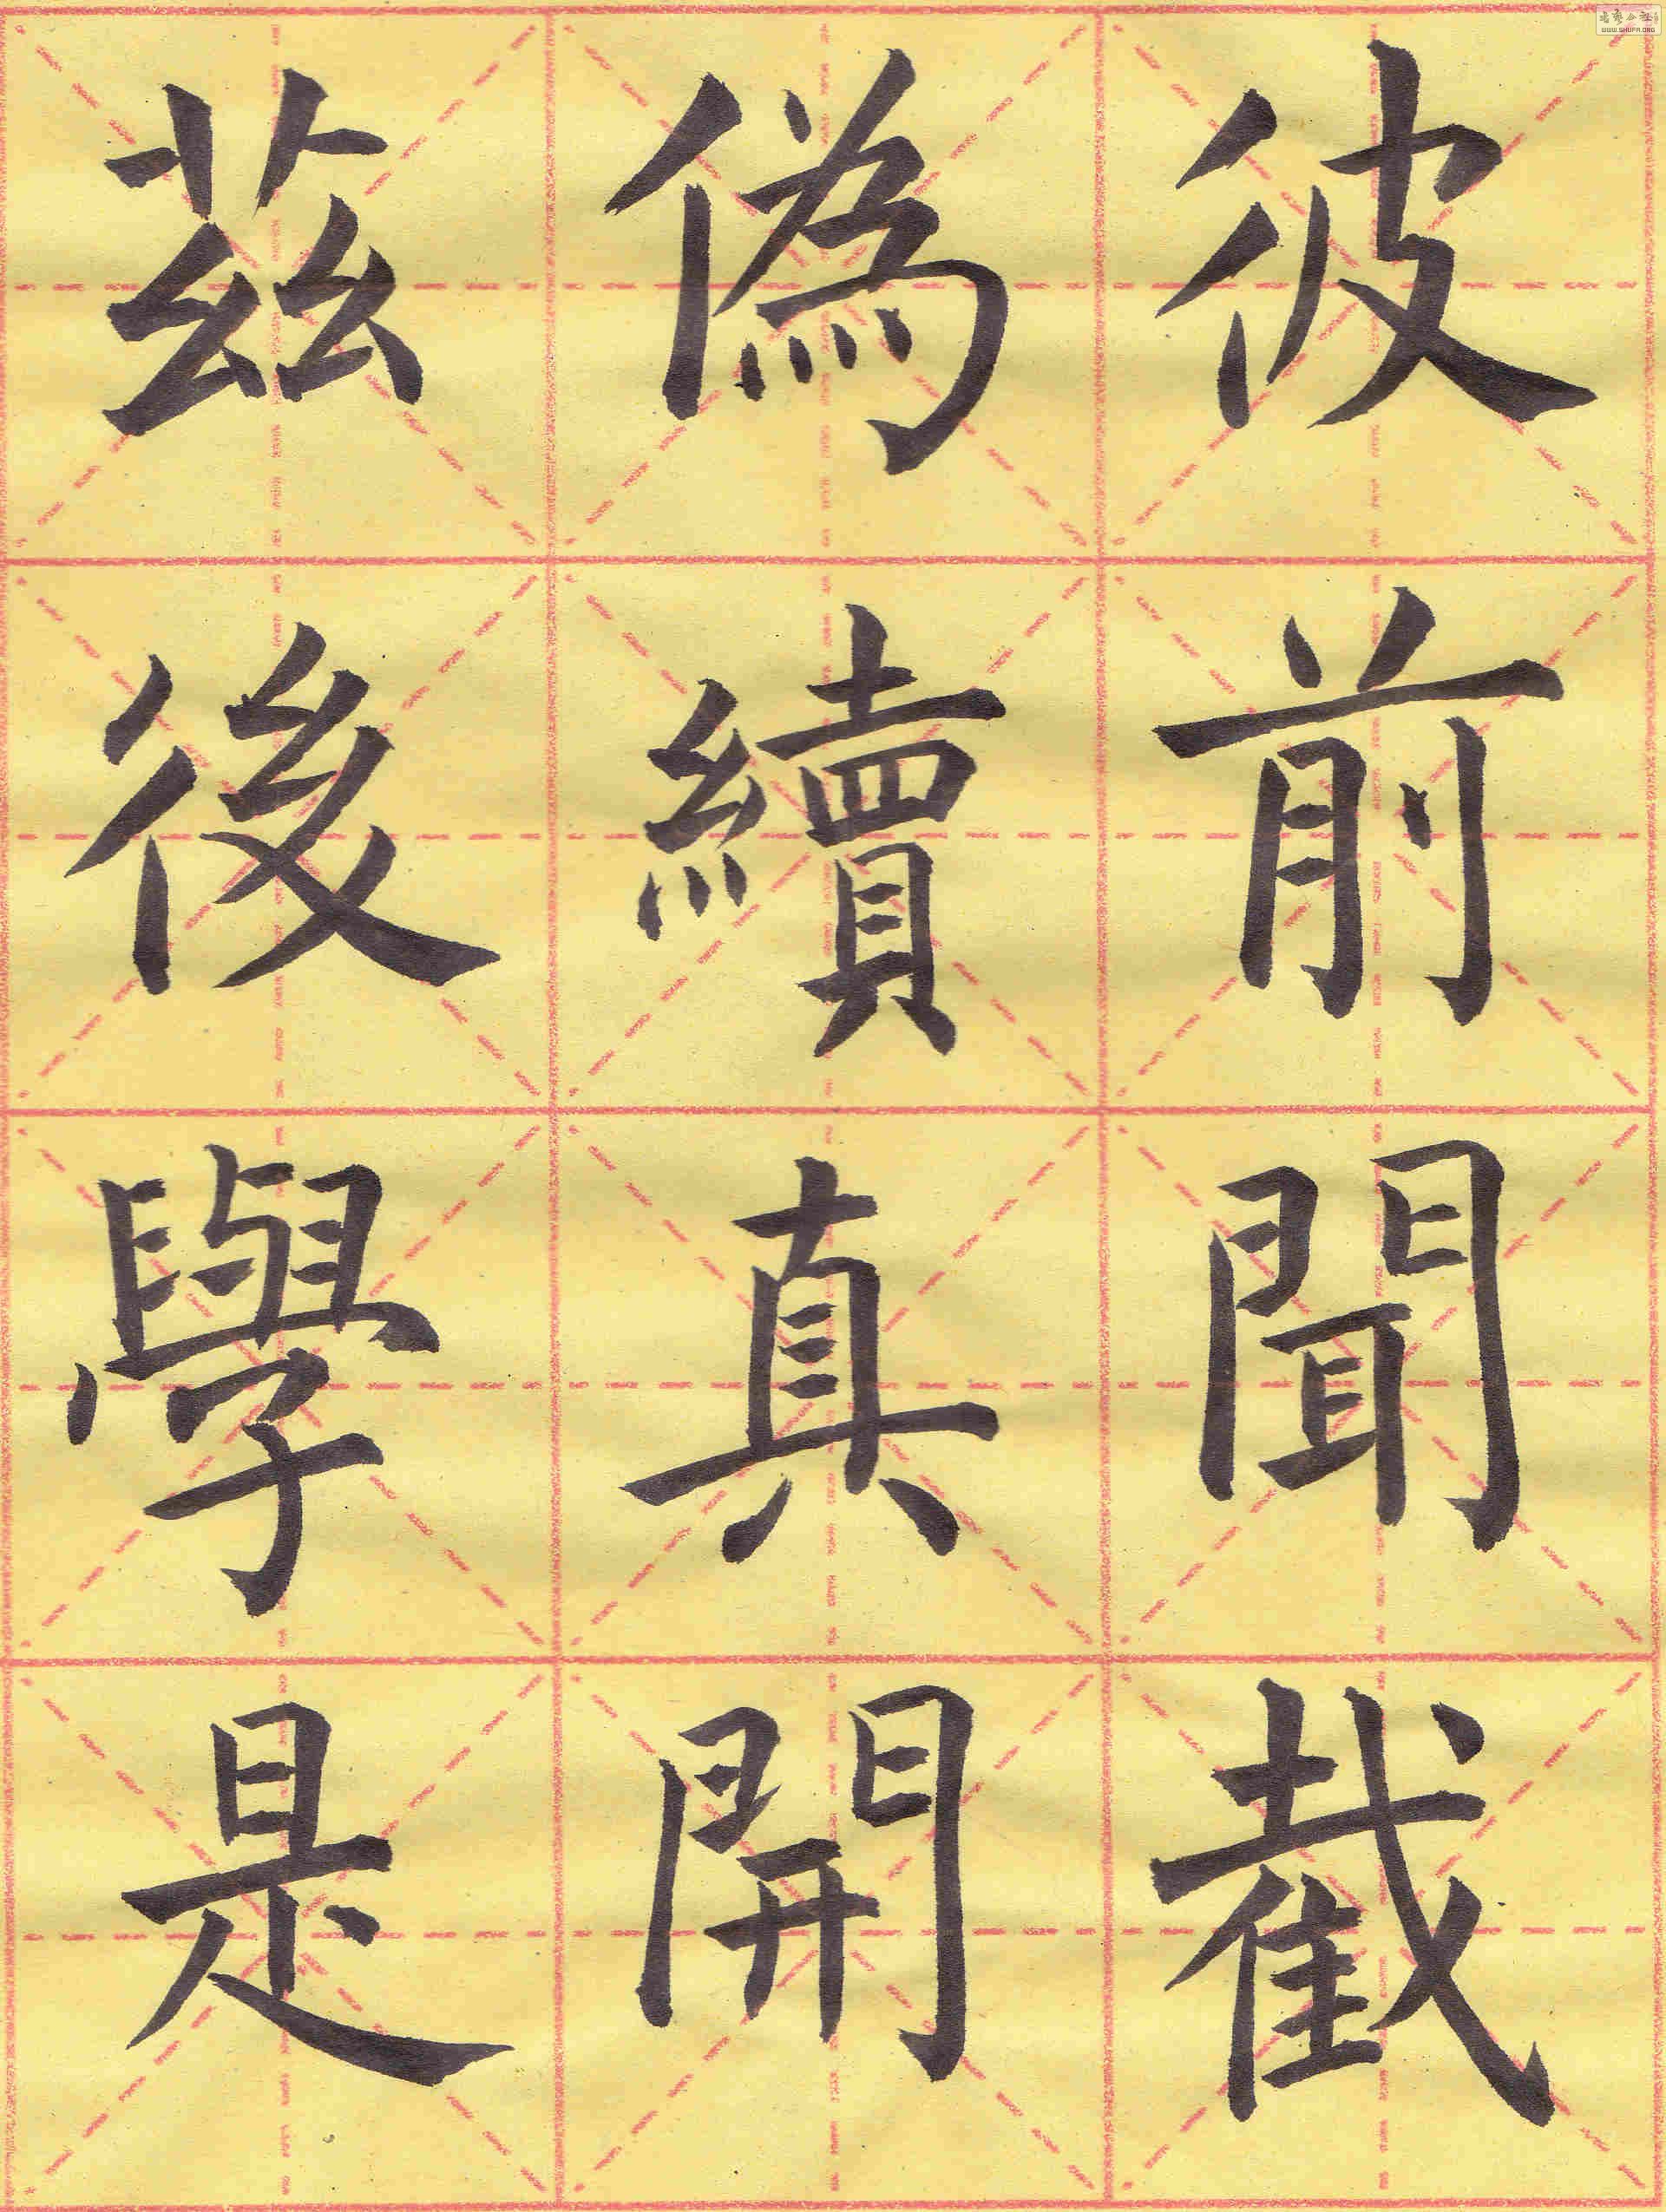 彼前聞截
偽續真開
茲後學是
WWW.SHUFA.ORG